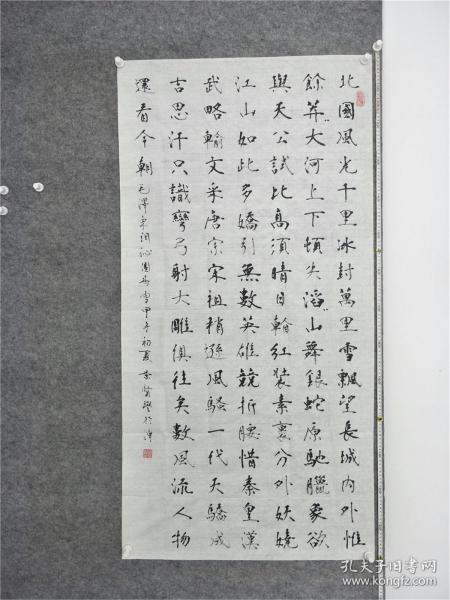 北國風光千里冰封萬里雪飄望長城内外惟
餘莽〻大河上下頓失滔〻山舞銀蛇原馳臘象欲
與天公試比高須晴日紅裝素裹分外妖嬈
江山如此多嬌引無數英雄競折腰惜秦皇漢
武略輸文采唐宗宋祖稍遜風騷一代天驕成
吉思汗只識彎弓射大雕俱往矣數風流人物
還看今朝毛澤東詞沁園春雪甲午初夏於津
孔夫子旧书网